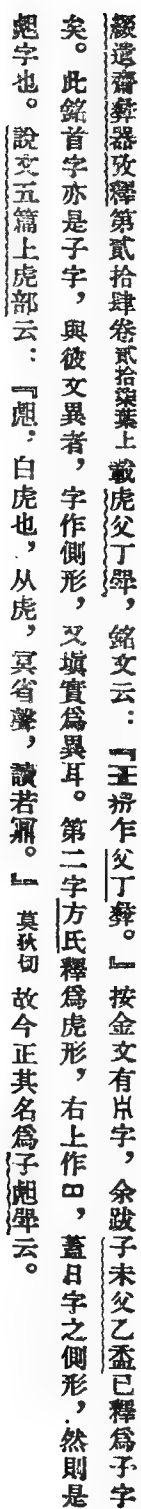 綴遺齋彝器攷釋第貳拾肆卷貳拾柒葉上載虎父丁斝,銘文云:『𤣩㧒乍父丁彝。』按金文有𣥂字,余跋子未父乙盉已釋爲子字
矣。此銘首字亦是子字,與彼文異者,字作側形,又塡實爲異耳。第二字方氏釋爲虎形,右上作日,蓋日字之側形,然則是
䖑字也。說文五篇上虎部云:『䖑,白虎也,从虎,冥省聲,讀若鼏。』莫狄切 故今正其名爲子䖑斝云。